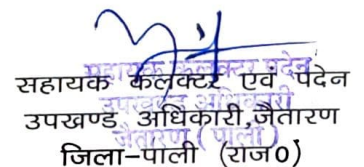 सहायक कलक्टर एवं पदेन
उपखण्ड अधिकारी,जैतारण
जिला-पाली (राज0)
सहायक कलक्टर पदेन
उपखण्ड अधिकारी
जैतारण ( पाली )